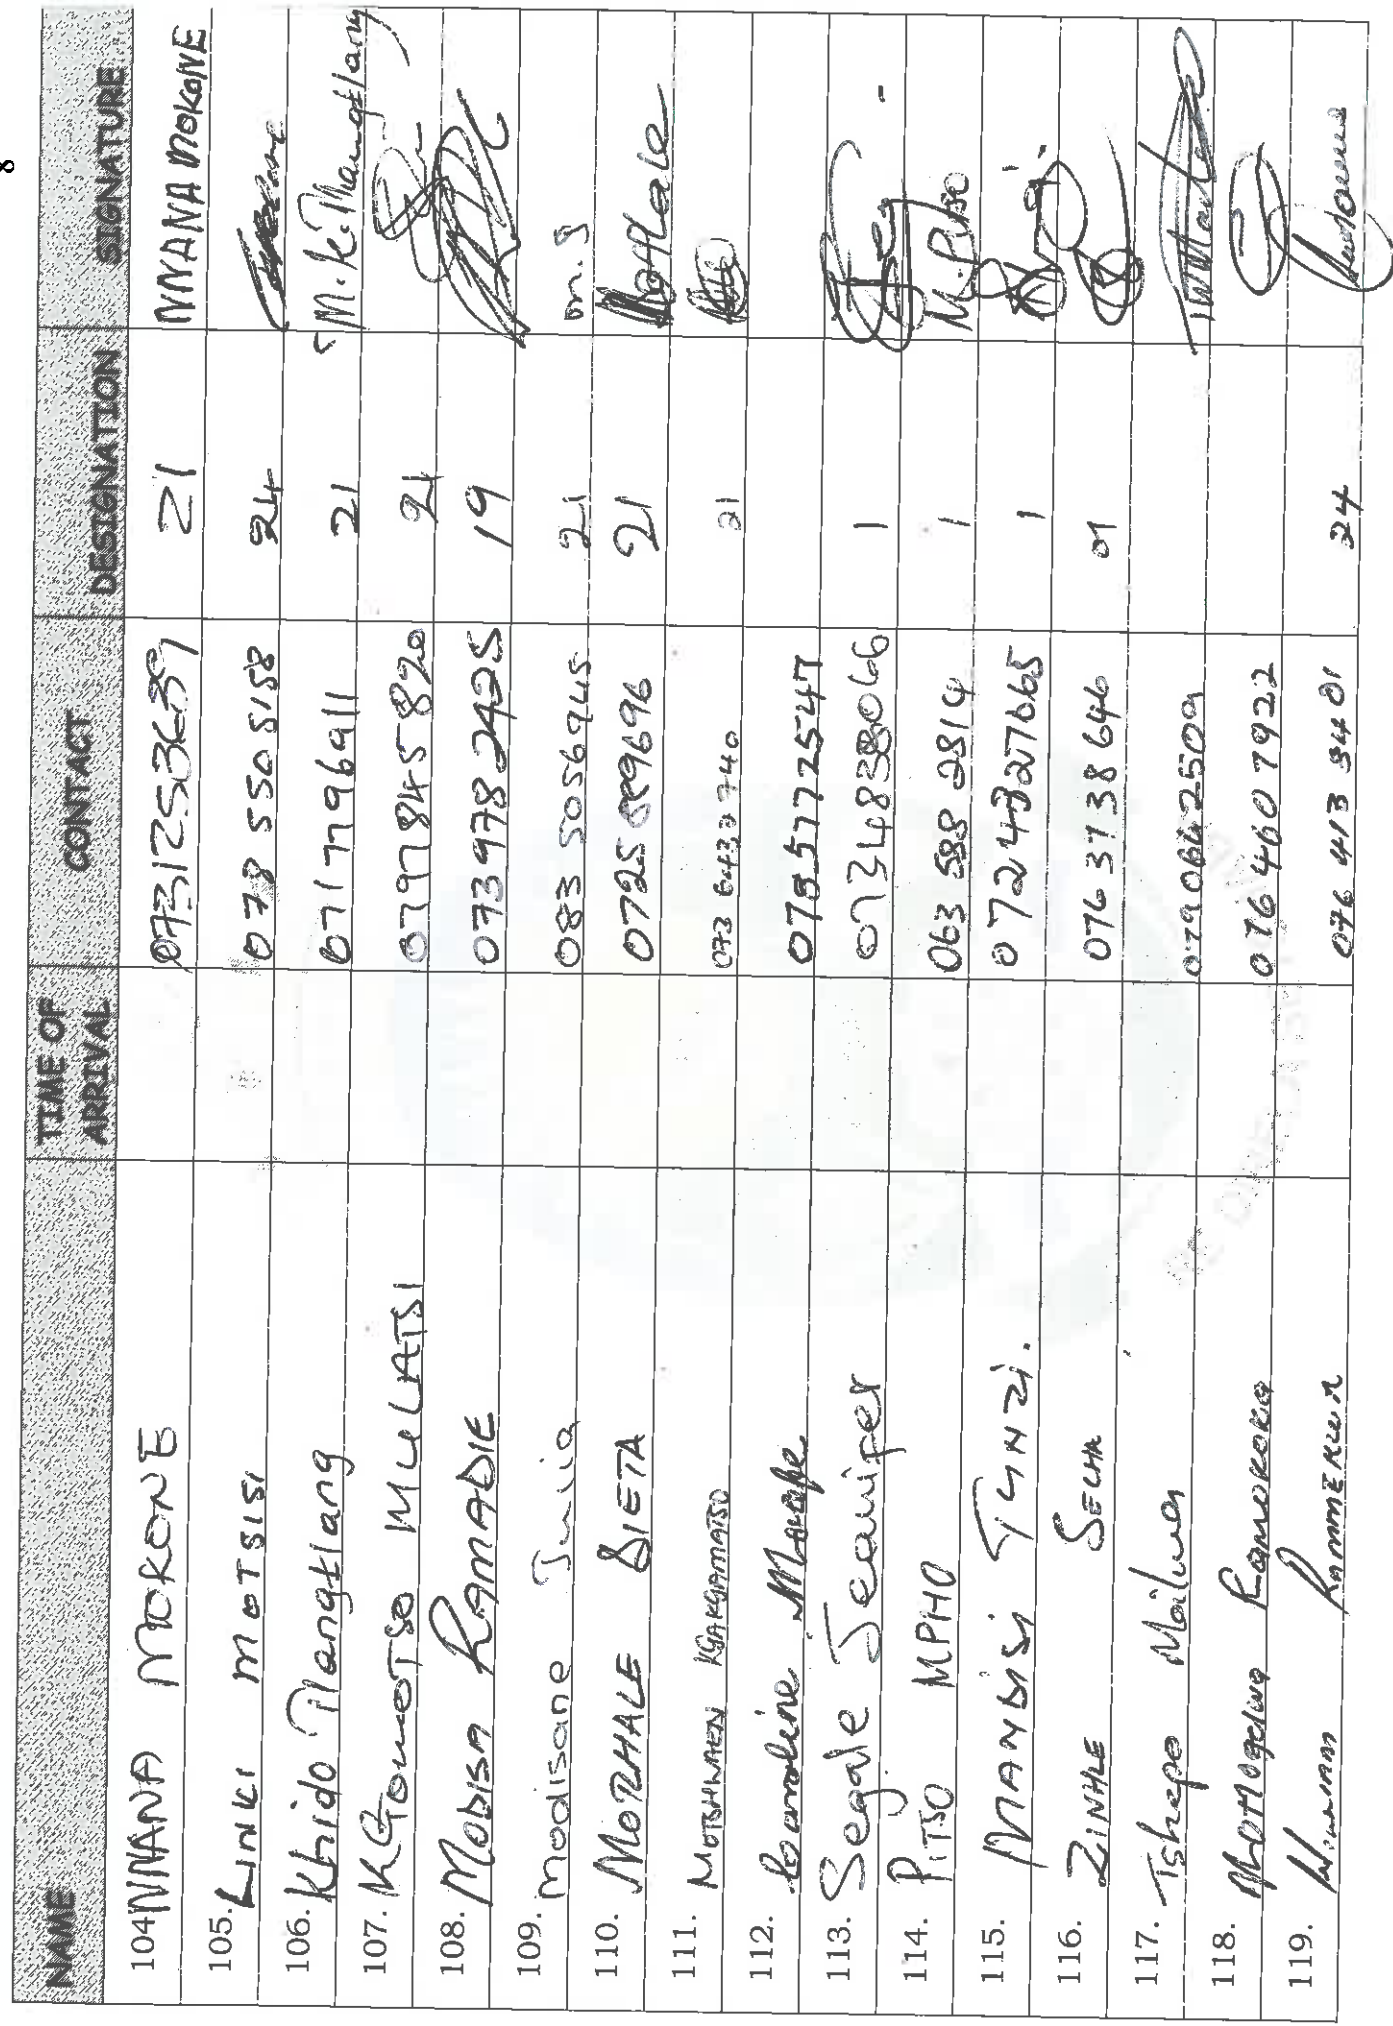 8
NAME TIME OF ARRIVAL CONTACT DESIGNATION SIGNATURE
104 NNANA MOKONE 0731253639 21 NNANA MOKONE
105. LINKI MOTSISI 078 550 5158 24
106. Khido Tlangtlang 0717796911 21 M.K.Tlangtlang
107. KGOMOTSO MULATSI 0797845820 21
108. MODISA RAMADIE 0739782425 19
109. Modisane Julia 083 5056945 21 m.J
110. MOTLHALE SIETA 0725899696 21
111. MOTSHWAEN KGAKGAMATSO 21
112. Caroline 0785772547
113. Segale Jennifer 0734838066 1
114. PITSO MPHO 063 588 2814 1 M.Pitso
115. MANDISI TUNZI. 1
116. ZINHLE SECHA 0763738646 01
117. Tshepo 0790642509
118. 076 460 7922
119. 076 413 3401 24